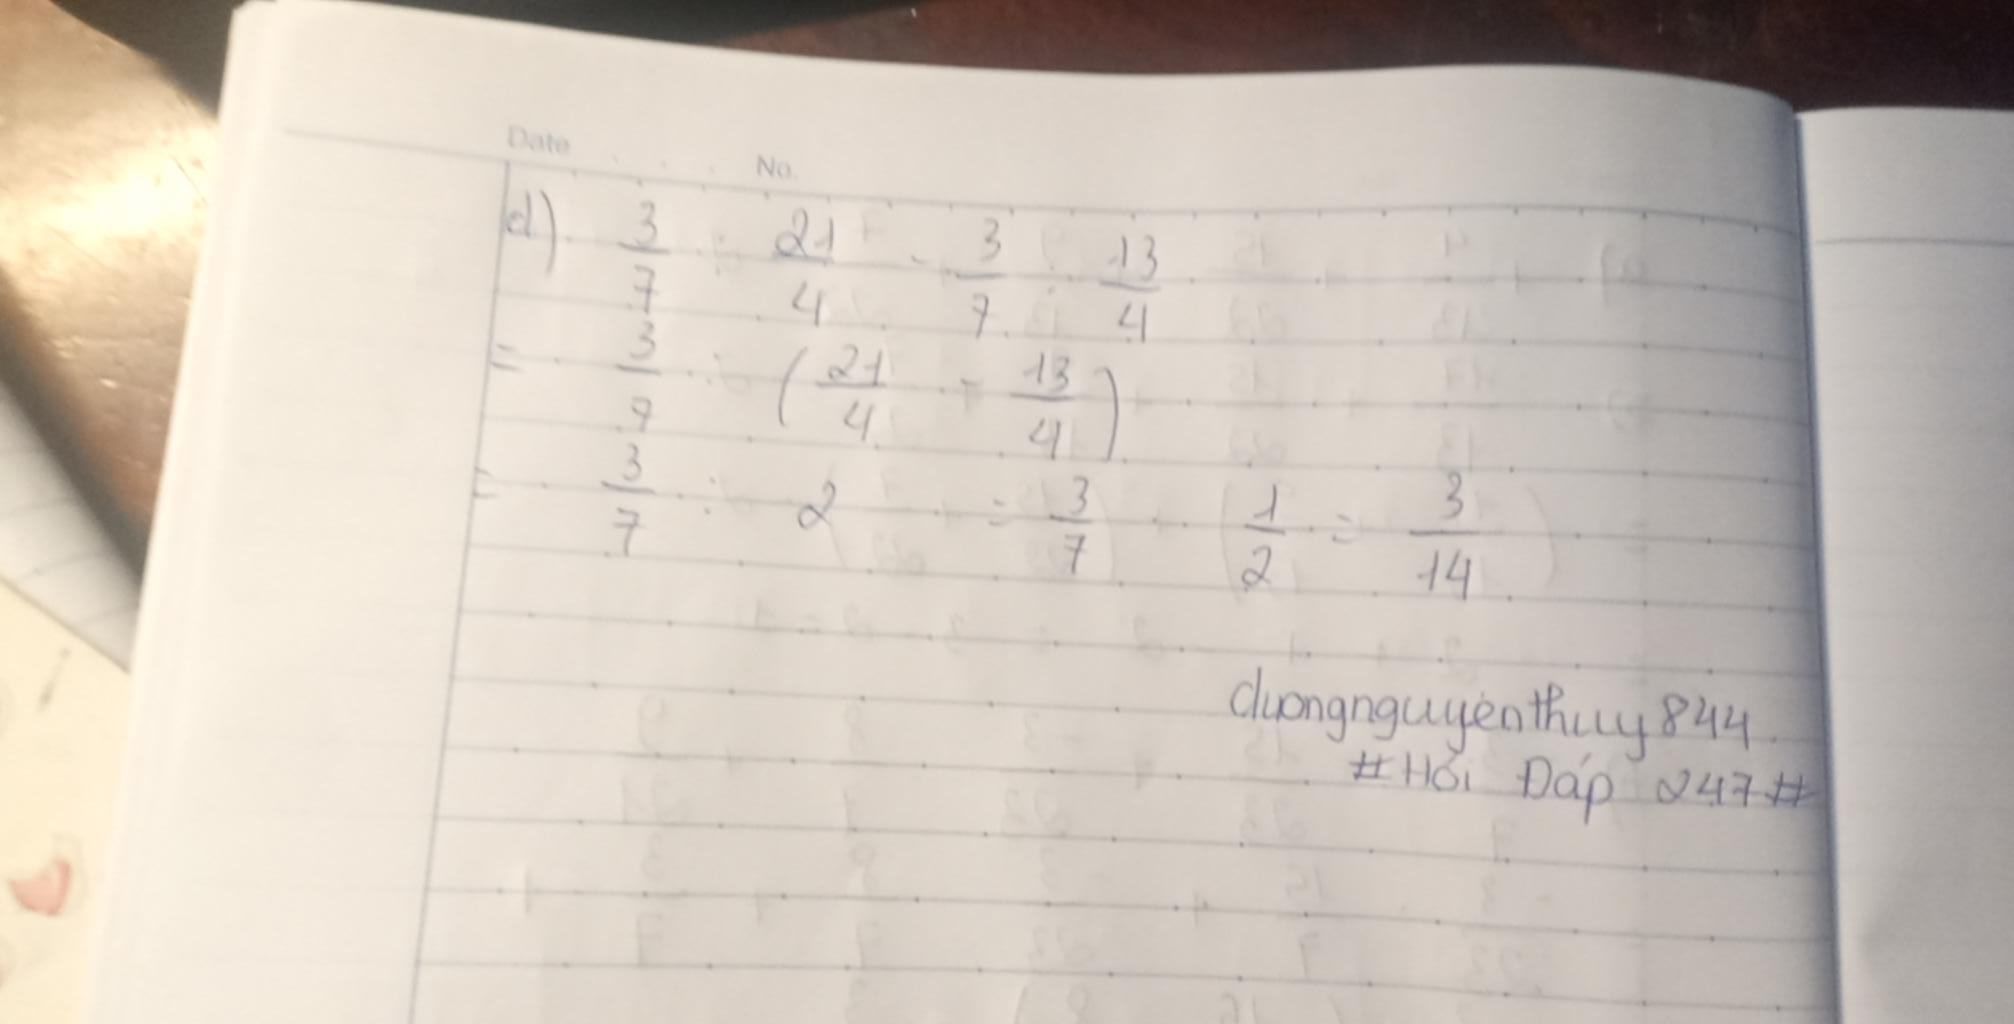 Date No.
d) 3/7 : 21/4 - 3/7 : 13/4
= 3/7 : (21/4 - 13/4)
= 3/7 : 2 = 3/7 . 1/2 = 3/14
duongnguyenthuy844
#Hỏi Đáp 247#